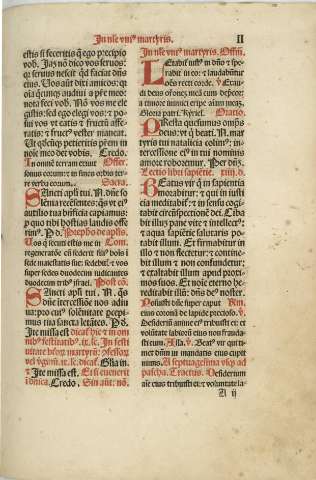 In nře vniᵒ martyris.
II
estis si feceritis q̄ ego precipio
vob. Iaz nō dico vos seruos:
qr seruus nescit qd faciat dn̄s
eius. Vos aūt dixi amicos: qr
oīa quecūqz audiui a pr̄e meo
nota feci vob. Nō vos me ele
gistis: sed ego elegi vos: et po
sui vos vt eatis et fructū affe
ratis: et fructᵒ vester maneat.
Vt qdcūqz petieritis prēm in
noīe meo det vobis. Credo.
In omnē terram exiuit Offer.
sonus eorum: et in fines orbis ter
re verba eorum. Sacra.
Sancti apl̄i tui. N. dn̄e so
lēnia recēsentes: qs vt ei
auxilio tua bn̄ficia capiamus:
pro quo tibi hostias laudis offe
rimᵒ. Per. Prephō de apl̄is.
Vos q̄ secuti estis me in Com.
regeneratiōe cū sederit filiᵒ hoīs
in sede maiestatis sue: sedebitis et vos
super sedes duodecim iudicantes
duodecim tribᵒ israel. Post cō.
Sancti apl̄i tui. N. qs
dn̄e intercessiōe nos adiu
ua: pro cuiᵒ solēnitate percepi
mus tua sancta letātes. Per.
Ite missa est.
Ite missa est. Et si euenerit
dn̄ica. Credo. Sin aūt: nō.
In nře vniᵒ martyris. Offm̄.
Letabit iustᵒ in dn̄o et spe
rabit in eo: et laudabuntur
oēs recti corde. Exau
di deus orōnez meā cum deprecor:
a timore inimici eripe aīam meaz.
Gloria patri. Kyriel. Oratio.
Presta quesumus omps
deus: vt q̄ beati. N. mar
tyris tui natalicia colimᵒ: in
tercessiōe eiᵒ in tui nominis
amore roboremur. Per dn̄z.
Lectio libri sapiētie.
Beatus vir q̄ in sapientia
morabitur: et qui in iusti
cia meditabit: et in sensu cogi
tabit circūspectiōnē dei. Ciba
bit illum pane vite et intellectᵒ:
et aqua sapiētie salutaris po
tabit illum. Et firmabitur in
illo et non flectetur: et contine
bit illum et non confundetur:
et exaltabit illum apud proxi
mos suos. Et noīe eterno he
reditabit illū: dn̄s deᵒ noster.
Posuisti dn̄e super caput
eius coronā de lapide precioso.
Desideriū anime eiᵒ tribuisti ei: et
volūtate labiorū eius non frauda
sti eum. Alla. Beatᵒ vir qui ti
met dn̄m in mandatis eius cupit
nimis. A septuagesima vsqz ad
pascha. Tractus. Desiderium
aīe eius tribuisti ei: et voluntate la
A ij